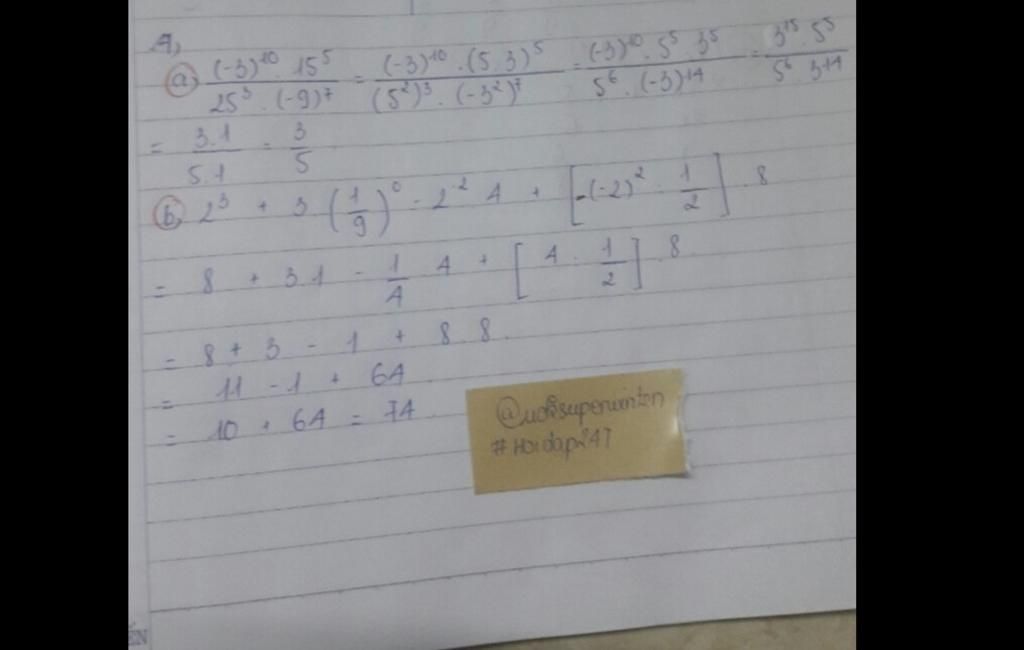 4,
a) \frac{(-3)^{10} . 15^5}{25^3 . (-9)^7} = \frac{(-3)^{10} . (5.3)^5}{(5^2)^3 . (-3^2)^7} = \frac{(-3)^{10} . 5^5 . 3^5}{5^6 . (-3)^{14}} = \frac{3^{15} . 5^5}{5^6 . 3^{14}}
= \frac{3.1}{5.1} = \frac{3}{5}
b) 2^3 + 3 (\frac{1}{9})^0 - 2^{-2} . 4 + [-(-2)^2 . \frac{1}{2}] . 8
= 8 + 3.1 - \frac{1}{4} . 4 + [4 . \frac{1}{2}] . 8
= 8 + 3 - 1 + 8.8
= 11 - 1 + 64
= 10 + 64 = 74
#Hoidap247